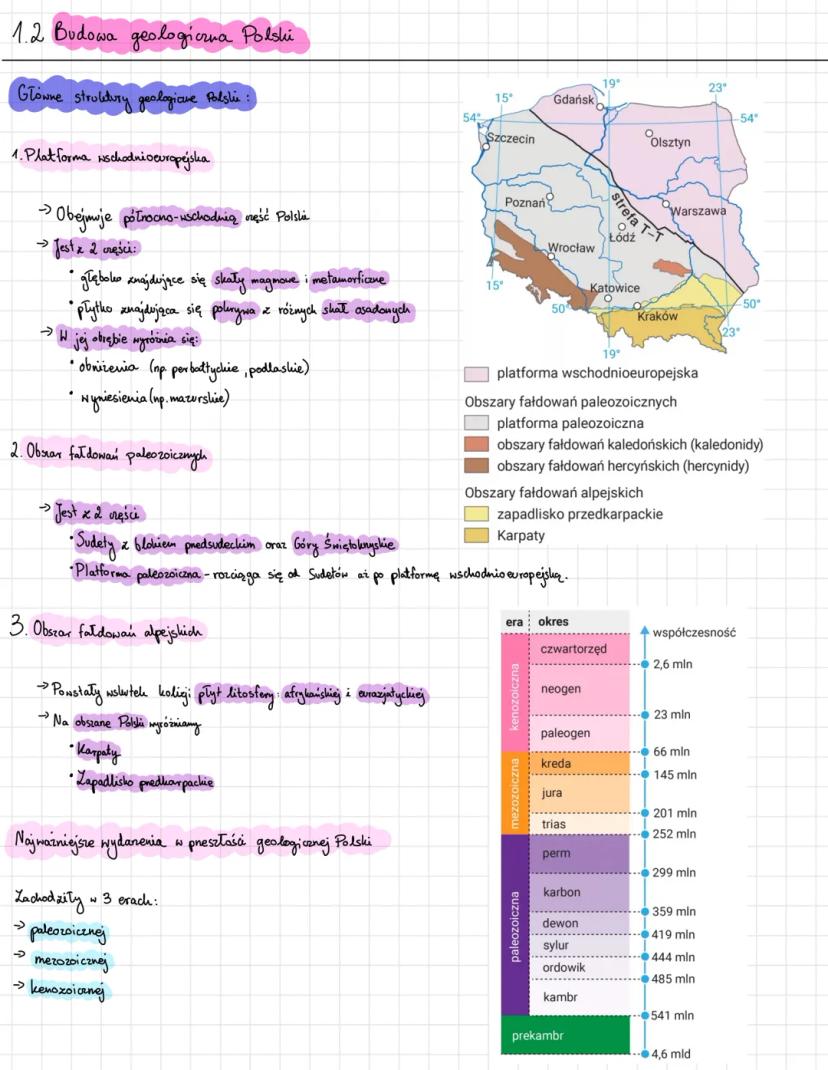 1.2 Budowa geologiczna Polski
Główne struktury geologiczne Polski:
1. Platforma wschodnioeuropejska
→ Obejmuje północno-wschodnią część Polski
→ Jest z 2 części:
• głęboko znajdujące się skały magmowe i metamorficzne
• płytko znajdująca się pokrywa z różnych skał osadowych
→ W jej obrębie wyróżnia się:
• obniżenia (np. perbałtyckie, podlaskie)
• wyniesienia (np. mazurskie)
2. Obszar fałdowań paleozoicznych
→ Jest z 2 części
• Sudety z blokiem przedsudeckim oraz Góry Świętokrzyskie
• Platforma paleozoiczna - rozciąga się od Sudetów aż po platformę wschodnioeuropejską.
3. Obszar fałdowań alpejskich
→ Powstały wskutek kolizji płyt litosfery: afrykańskiej i eurazjatyckiej
→ Na obszarze Polski wyróżniamy
• Karpaty
• Zapadlisko przedkarpackie
Najważniejsze wydarzenia w przeszłości geologicznej Polski
Zachodziły w 3 erach:
→ paleozoicznej
→ mezozoicznej
→ kenozoicznej
15°
19°
23°
54°
54°
Gdańsk
Szczecin
Olsztyn
Poznań
strefa T–T
Warszawa
Łódź
Wrocław
15°
Katowice
50°
50°
Kraków
23°
19°
platforma wschodnioeuropejska
Obszary fałdowań paleozoicznych
platforma paleozoiczna
obszary fałdowań kaledońskich (kaledonidy)
obszary fałdowań hercyńskich (hercynidy)
Obszary fałdowań alpejskich
zapadlisko przedkarpackie
Karpaty
era okres
współczesność
kenozoiczna
czwartorzęd
2,6 mln
neogen
23 mln
paleogen
66 mln
mezozoiczna
kreda
145 mln
jura
201 mln
trias
252 mln
paleozoiczna
perm
299 mln
karbon
359 mln
dewon
419 mln
sylur
444 mln
ordowik
485 mln
kambr
541 mln
prekambr
4,6 mld